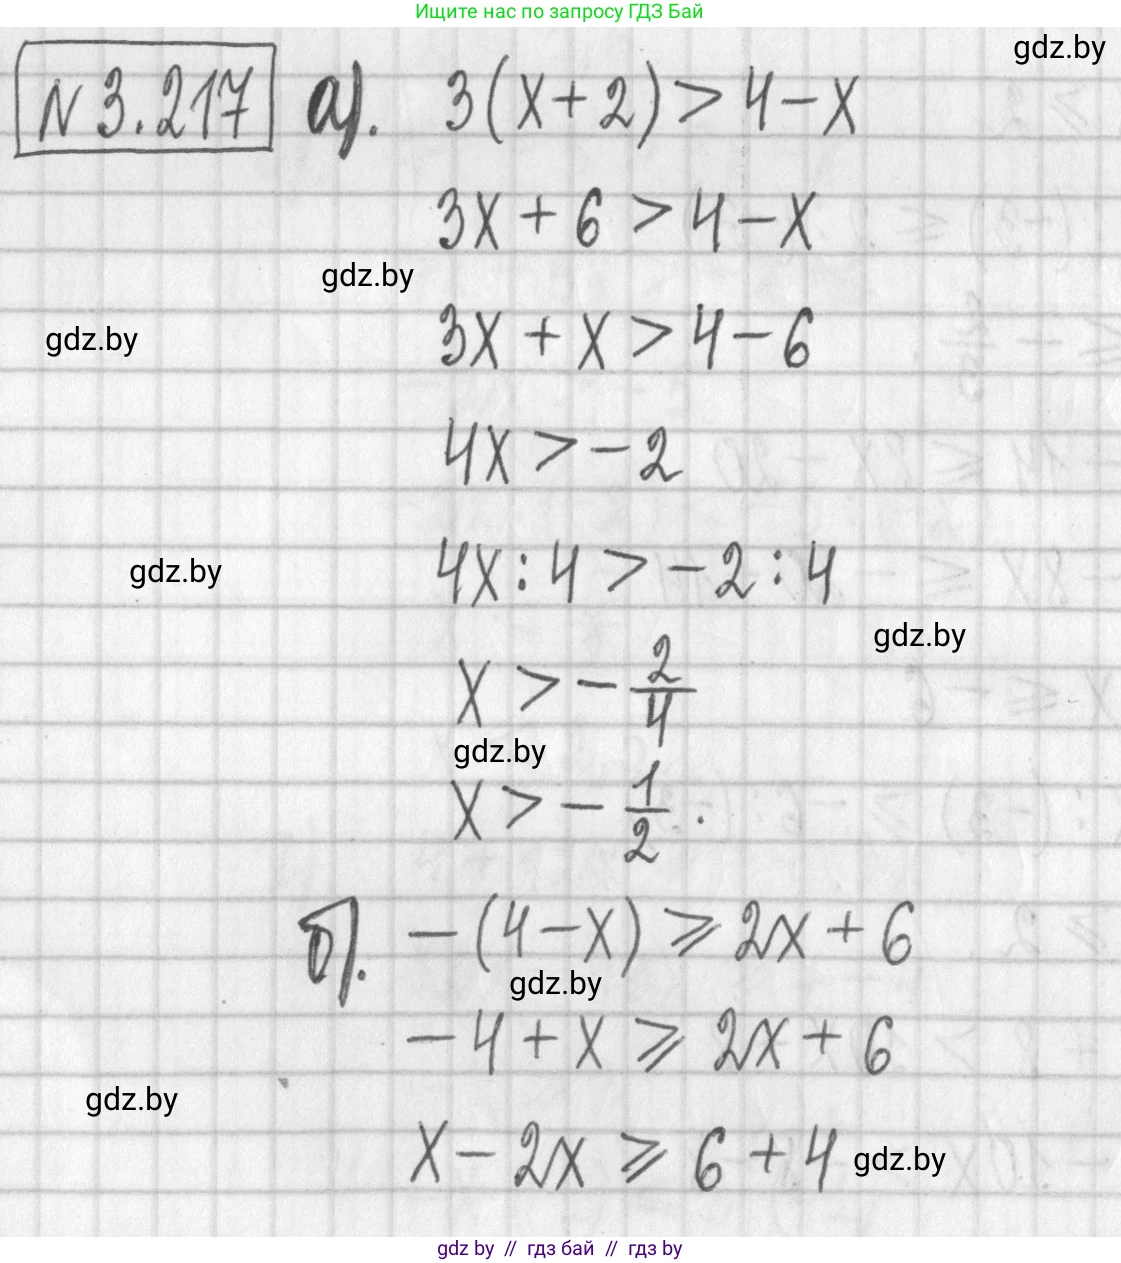 Ищите нас по запросу ГДЗ Бай
gdz.by
N 3.217 а). 3(x+2)>4-x
3x+6>4-x
gdz.by
3x+x>4-6
gdz.by
4x>-2
4x:4>-2:4
gdz.by
gdz.by
x>-2/4
gdz.by
x>-1/2.
б). -(4-x)⩾2x+6
gdz.by
-4+x⩾2x+6
gdz.by
x-2x⩾6+4
gdz.by
gdz by // гдз бай // гдз by